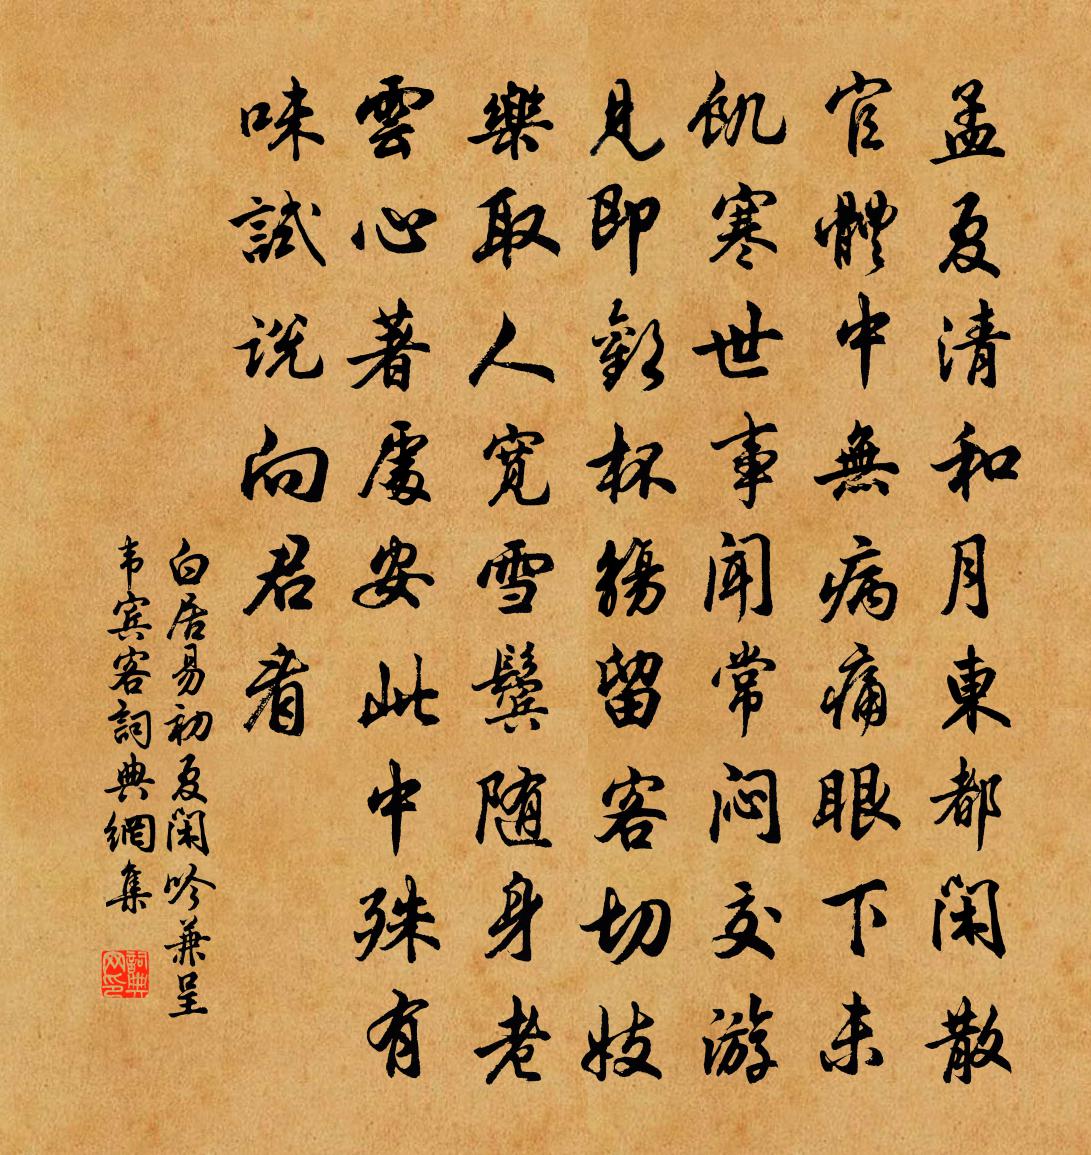 孟夏清和月東都閑散
官體中無病痛眼下未
飢寒世事聞常悶交游
見即歡杯觴留客切妓
樂取人寬雪鬢隨身老
雲心著處安此中殊有
味試說向君看
白居易初夏閑吟兼呈
韋賓客詞典網集
詞典网印